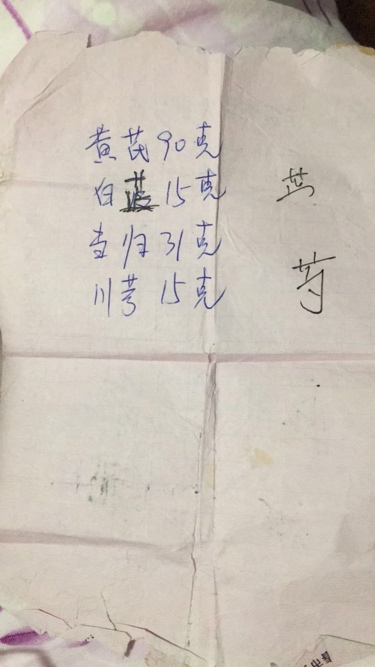 黄芪90克
白 15克
当归31克
川芎15克
芍